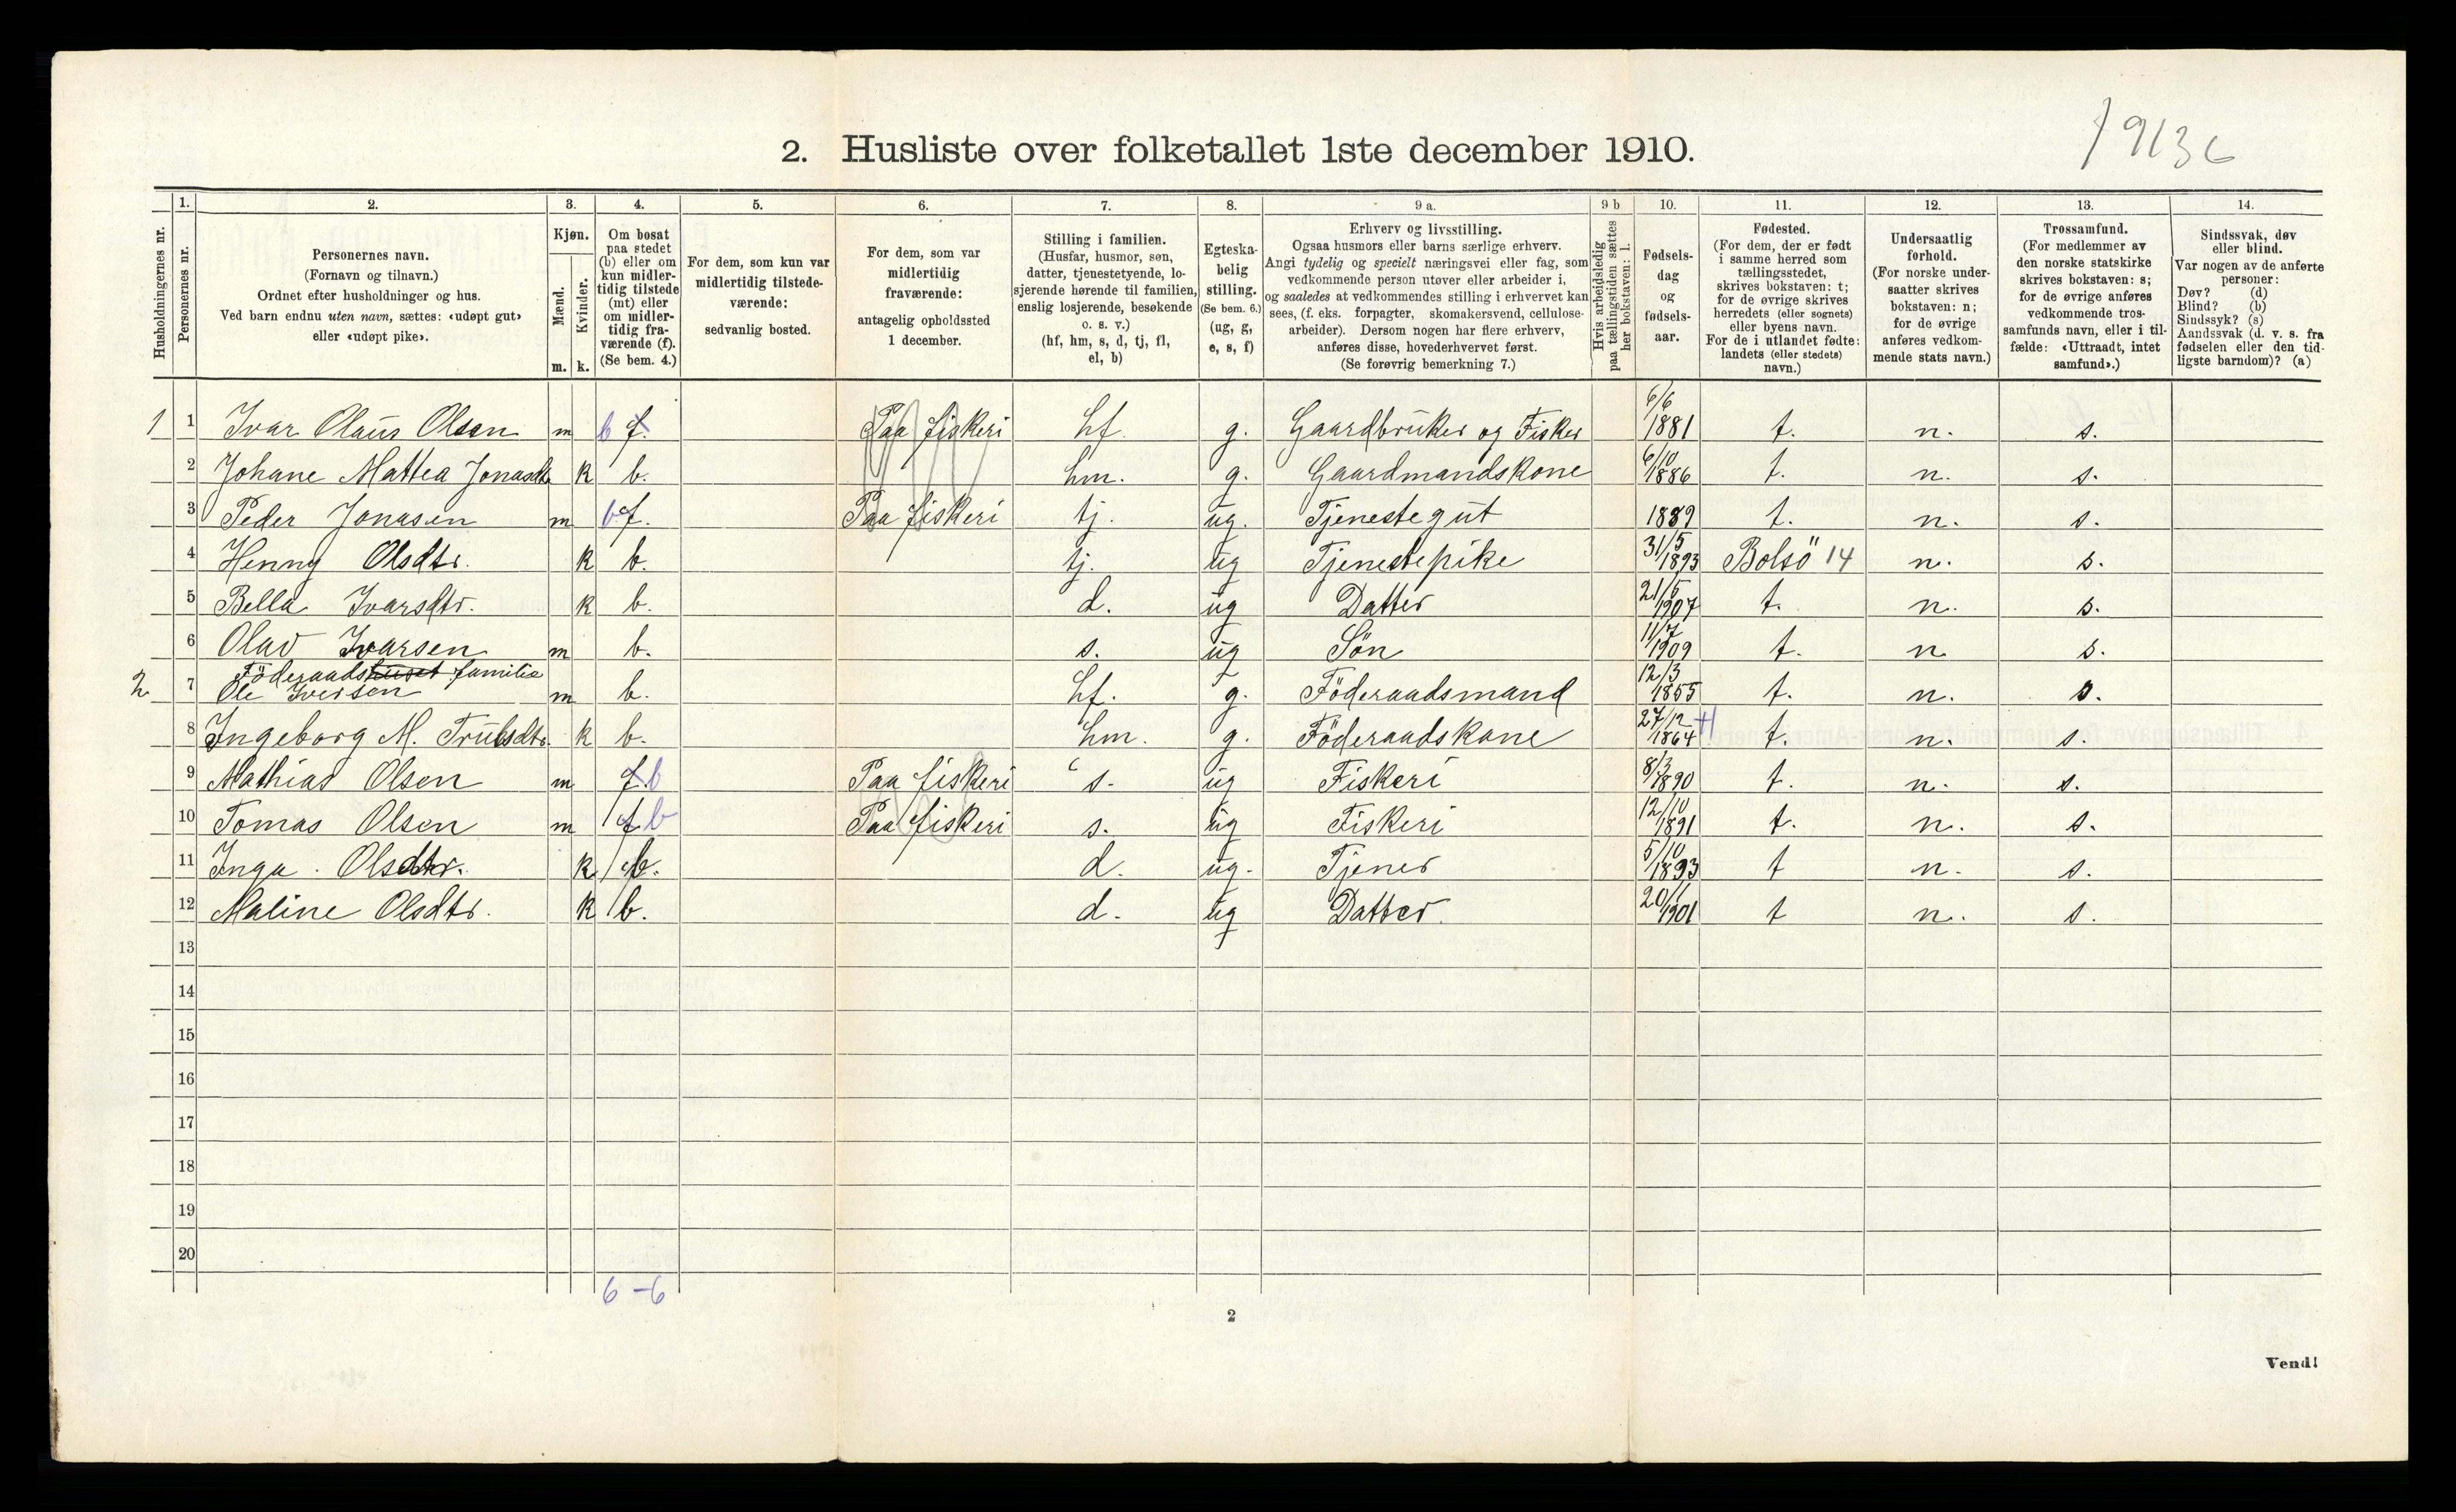 19136
2. Husliste over folketallet 1ste december 1910.
Husholdningernes nr.
1. Personernes nr.
2. Personernes navn.
(Fornavn og tilnavn.)
Ordnet efter husholdninger og hus.
Ved barn endnu uten navn, sættes: «udøpt gut»
eller «udøpt pike».
3. Kjøn.
Mænd. m.
Kvinder. k.
4. Om bosat
paa stedet
(b) eller om
kun midler-
tidig tilstede
(mt) eller
om midler-
tidig fra-
værende (f).
(Se bem. 4.)
5. For dem, som kun var
midlertidig tilstede-
værende:
sedvanlig bosted.
6. For dem, som var
midlertidig
fraværende:
antagelig opholdssted
1 december.
7. Stilling i familien.
(Husfar, husmor, søn,
datter, tjenestetyende, lo-
sjerende hørende til familien,
enslig losjerende, besøkende
o. s. v.)
(hf, hm, s, d, tj, fl,
el, b)
8. Egteska-
belig
stilling.
(Se bem. 6.)
(ug, g,
e, s, f)
9 a. Erhverv og livsstilling.
Ogsaa husmors eller barns særlige erhverv.
Angi tydelig og specielt næringsvei eller fag, som
vedkommende person utøver eller arbeider i,
og saaledes at vedkommendes stilling i erhvervet kan
sees, (f. eks. forpagter, skomakersvend, cellulose-
arbeider). Dersom nogen har flere erhverv,
anføres disse, hovederhvervet først.
(Se forøvrig bemerkning 7.)
9 b. Hvis arbeidsledig
paa tællingstiden sættes
her bokstaven: l.
10. Fødsels-
dag
og
fødsels-
aar.
11. Fødested.
(For dem, der er født
i samme herred som
tællingsstedet,
skrives bokstaven: t;
for de øvrige skrives
herredets (eller sognets)
eller byens navn.
For de i utlandet fødte:
landets (eller stedets)
navn.)
12. Undersaatlig
forhold.
(For norske under-
saatter skrives
bokstaven: n;
for de øvrige
anføres vedkom-
mende stats navn.)
13. Trossamfund.
(For medlemmer av
den norske statskirke
skrives bokstaven: s;
for de øvrige anføres
vedkommende tros-
samfunds navn, eller i til-
fælde: «Uttraadt, intet
samfund».)
14. Sindssvak, døv
eller blind.
Var nogen av de anførte
personer:
Døv? (d)
Blind? (b)
Sindssyk? (s)
Aandssvak (d. v. s. fra
fødselen eller den tid-
ligste barndom)? (a)
1 1 Ivar Olaus Olsen m b f. Paa fiskeri hf. g. Gaardbruker og Fisker 6/6 1881 t. n. s.
2 Johane Mattea Jonasdtr k b. hm. g. Gaardmandskone 6/10 1886 t. n. s.
3 Peder Jonasen m b f. Paa fiskeri tj. ug. Tjenestegut 1889 t. n. s.
4 Henny Olsdtr. k b. tj. ug Tjenestepike 31/5 1893 Bolsö 14 n. s.
5 Bella Ivarsdtr. k b. d. ug Datter 21/5 1907 t. n. s.
6 Olav Ivarsen m b. s. ug Sön 11/7 1909 t. n s.
Föderaadshuset familie
2 7 Ole Iversen m b. hf. g. Föderaadsmand 12/3 1855 t. n. s.
8 Ingeborg M. Trulsdtr. k b. hm. g. Föderaadskone 27/12 1864 t. n. s.
9 Mathias Olsen m f. b Paa fiskeri s. ug Fiskeri 8/3 1890 t. n. s.
10 Tomas Olsen m f b Paa fiskeri s. ug Fiskeri 12/10 1891 t. n. s.
11 Inga. Olsdtr. k b. d. ug. Tjener 5/10 1893 t n. s.
12 Maline Olsdtr. k b. d. ug Datter. 20/1 1901 t n. s.
13
14
15
16
17
18
19
20
6 - 6
2
Vend!